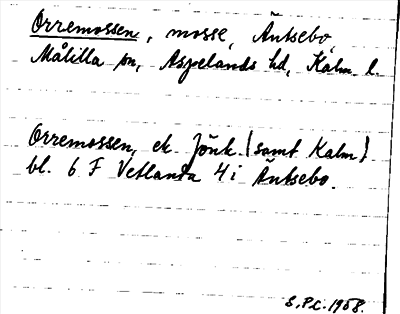 Orremossen, mosse, Äntsebo,
Målilla sn, Aspelands hd, Kalm. l.
Orremossen, ek. Jönk. (samt Kalm)
bl. 6 F Vetlanda 4 i Äntsebo.
1958.